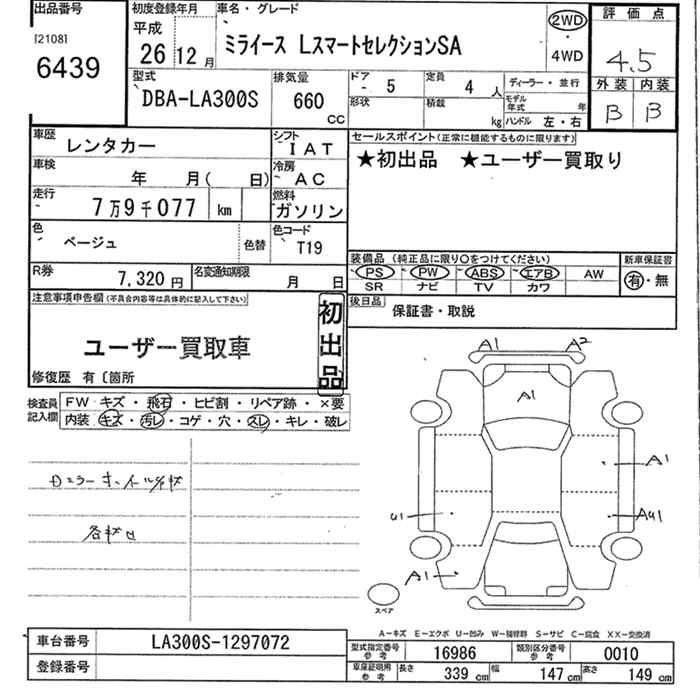 出品番号
[2108]
6439
初度登録年月
平成
26年 12月
車名・グレード
ミライース LスマートセレクションSA
2WD
・
4WD
評価点
4.5
外装 内装
B B
型式
DBA-LA300S
排気量
660 CC
ドア - 5
定員 4 人
形状
積載 kg
ディーラー・並行
モデル年式 年
ハンドル 左・右
車歴 レンタカー
シフト IAT
車検 年 月( 日)
冷房 AC
走行 7万9千077 km
燃料 ガソリン
色 ベージュ 色替
色コード T19
R券 7,320円
名変通知期限 月 日
セールスポイント(正常に機能するものに限ります)
★初出品 ★ユーザー買取り
装備品 (純正品に限り○をつけてください)
PS PW ABS エアB AW
SR ナビ TV カワ
新車保証書
有・無
後日品 保証書・取説
注意事項申告欄(不具合内容等は具体的に記入して下さい)
初出品
ユーザー買取車
修復歴 有〔箇所
検査員記入欄
FW キズ・飛石・ヒビ割・リペア跡・×要
内装・キズ・汚レ・コゲ・穴・スレ・キレ・破レ
A1 A2
A1
A1
U1
AU1
A1
スペア
A−キズ E−エクボ U−凹み W−補修跡 S−サビ C−腐食 XX−交換済
車台番号 LA300S-1297072
登録番号
型式指定番号 参考 16986
類別区分番号 参考 0010
車庫証明用 参考 長さ 339 cm 幅 147 cm 高さ 149 cm